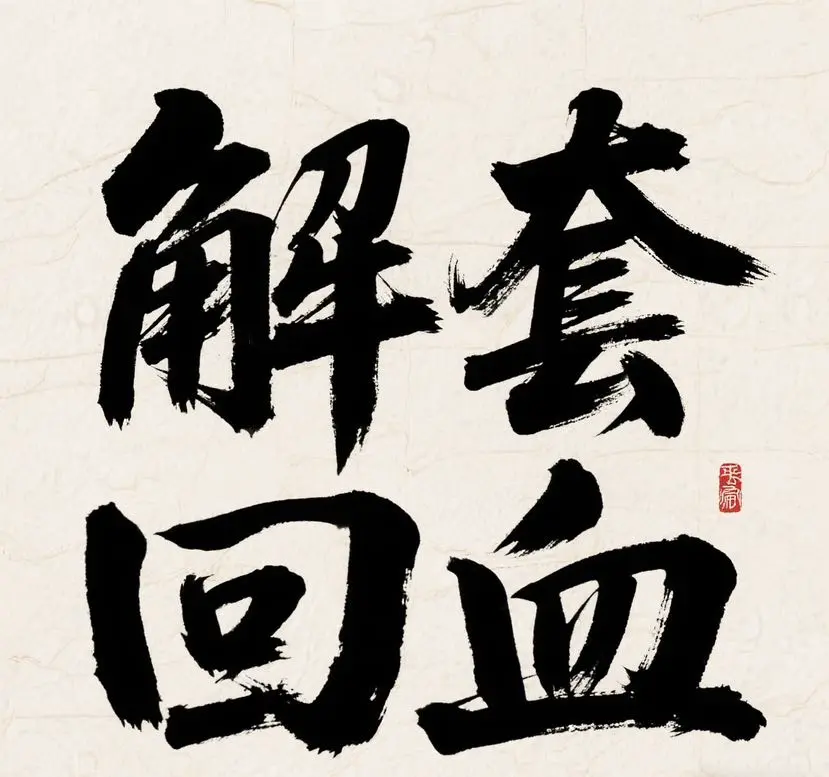 解套
回血